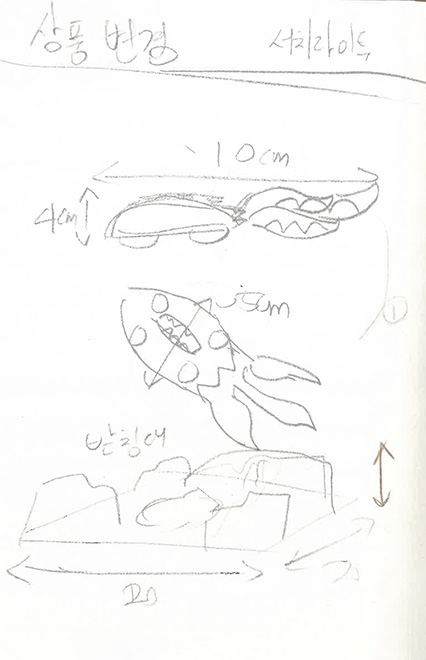 상품 변경 서치라이트
10cm
4cm
5cm
①
받침대
20